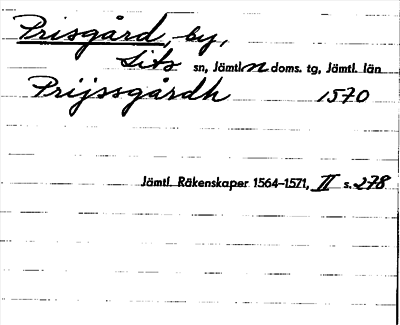 Prisgård, by,
Lits sn, Jämtl. n doms. tg, Jämtl. län
Prijssgårdh 1570
Jämtl. Räkenskaper 1564-1571, II s. 278